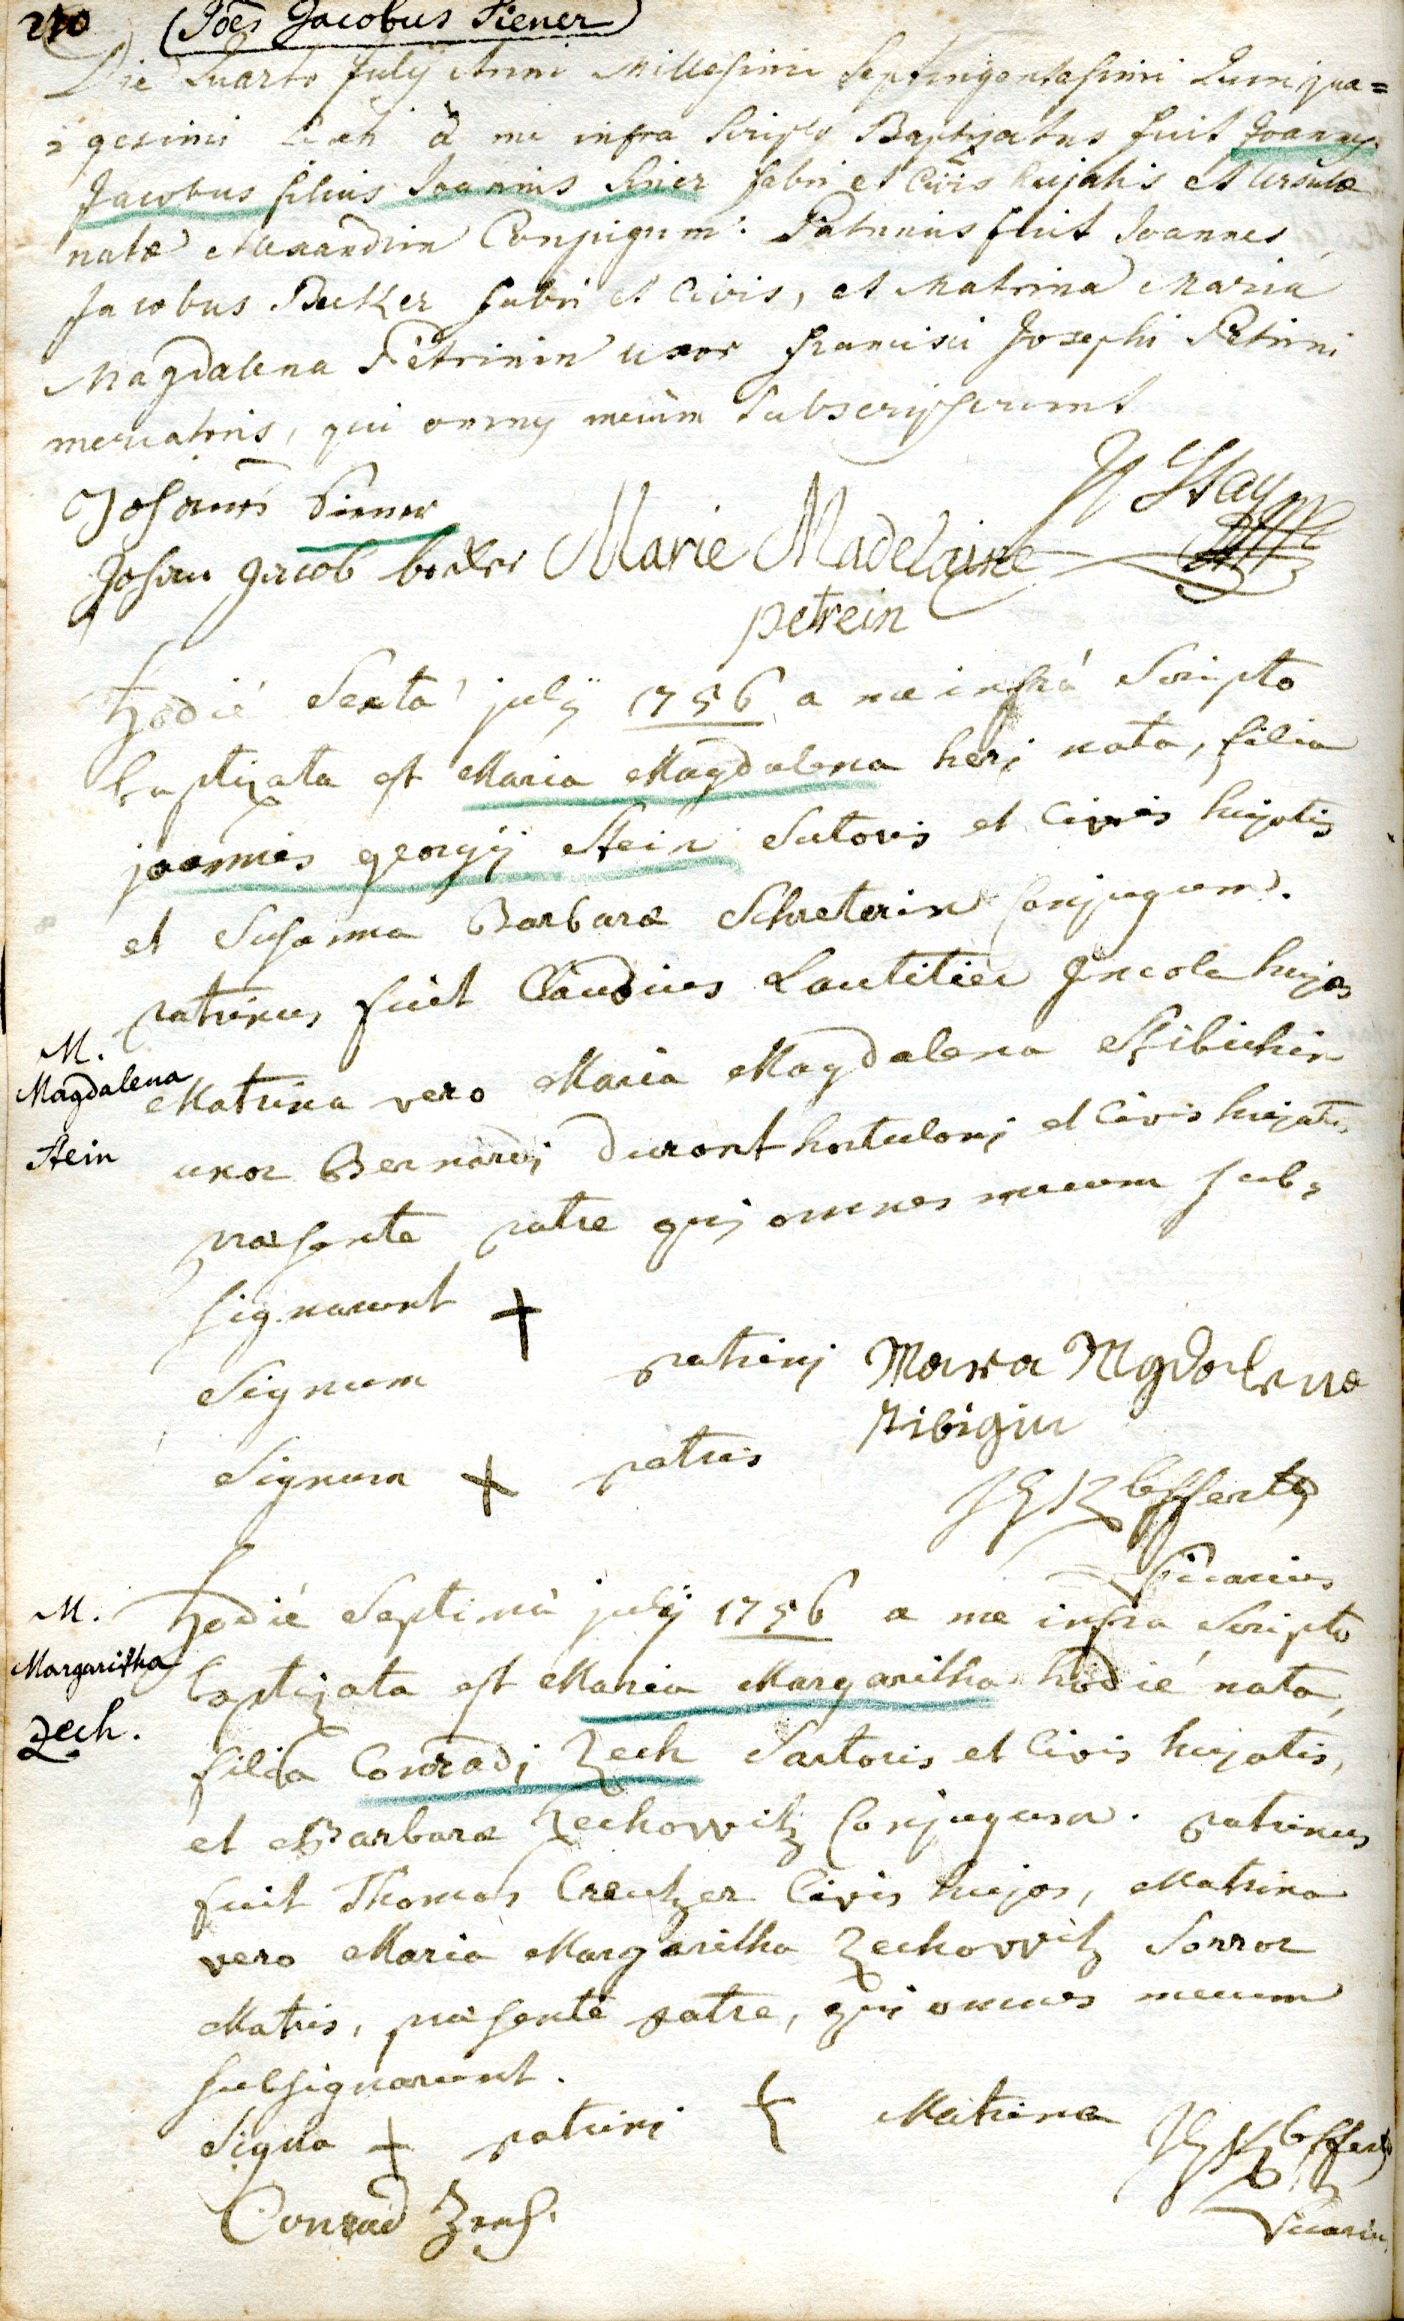 210 (Joēs Jacobus Siener)
Die Quarto Julij Anni Millesimi Septingentesimi Quinqua=
gesimi Sexti à me infra Scripto Baptizatus fuit Joannes
Jacobus filius Joannis Siner fabri et Civis hujatis et Ursulæ
natæ Alexandrin Conjugum: Patrinus fuit Joannes
Jacobus Becker fabri et Civis, et Matrina Maria
Magdalena Petrinin uxor Francisci Josephi Petrini
mercatoris, qui omnes mecum Subscripserunt
Johannes Siener
Johan Jacob becker Marie Madelaine
petrein
hodié Sexta julij 1756 a me infrá Scripto
baptizata est Maria Magdalena heri nata, filia
joannis georgij Stein Sutoris et Civis hujatis
et Susanna Barbaræ Schreterin Conjugum.
patrinus fuit Claudius Lautitier Jncola hujas
M.
Magdalena
Stein
Matrina vero Maria Magdalena Stibichin
uxor Bernardi Duront hortulani et Civis hujatis
præsente patre qui omnes mecum sub=
signarunt +
Signum patrini Maria Mgdalena
Signum + patris
Vicarius
M.
Margaritha
Zech.
hodié Septimà julij 1756 a me infra Scripto
baptizata est Maria Margaritha hodié nata,
filia Conradi Zech Sartoris et Civis hujatis,
et Barbaræ Zechowitz Conjugum. patrinus
fuit Thomas Creutzer Civis hujas, Matrina
vero Maria Margaritha Zechowitz Sorror
Matris, præsente patre, qui omnes mecum
subsignarunt.
Signa + patrini + Matrina
Conrad Zech.
Vicarius